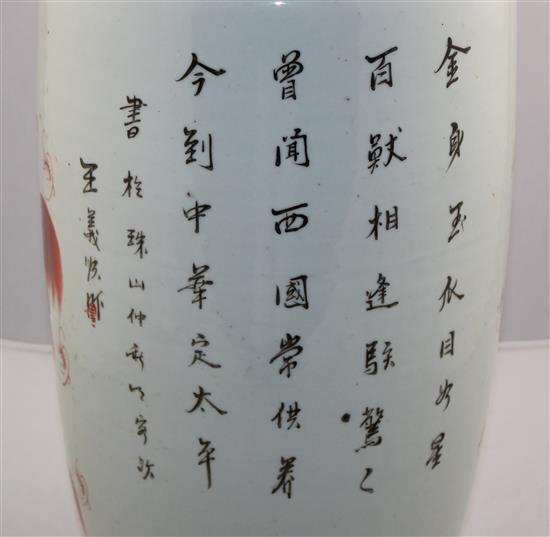 金身玉爪目如星
百獸相逢駭驚〻
曾聞西國常供養
今到中華定太平
書於珠山仲秋月
王義順